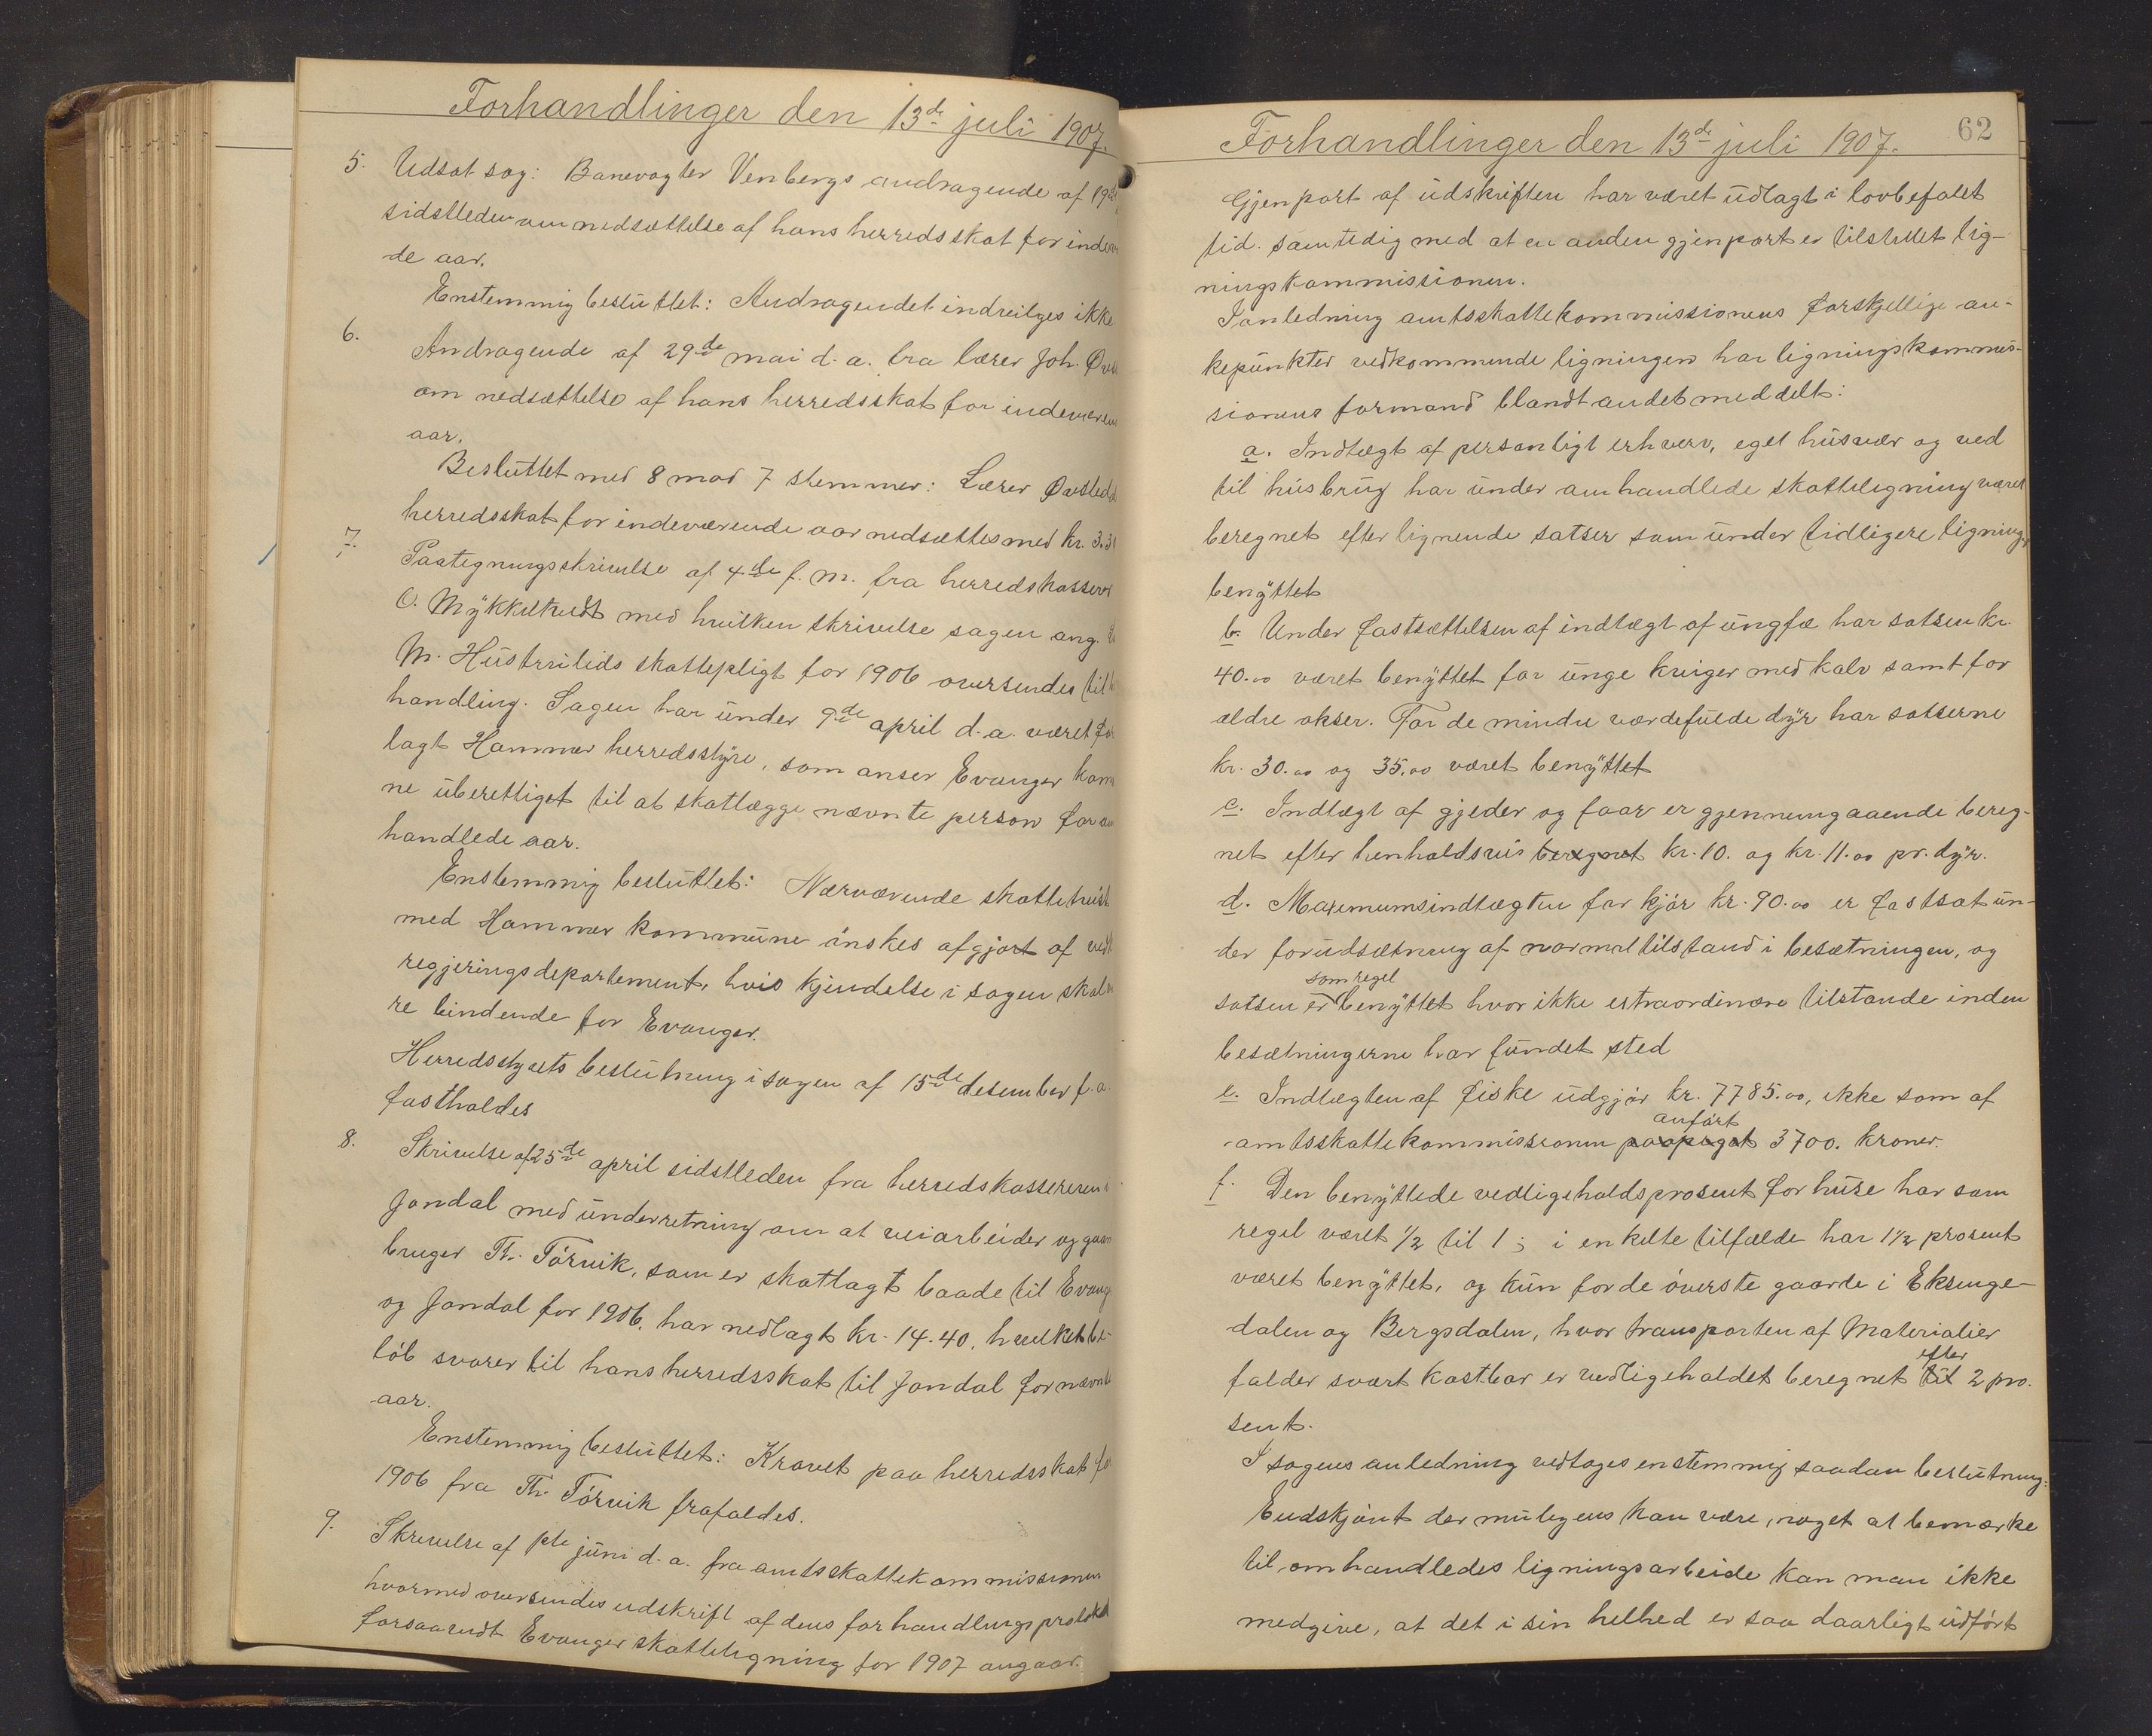 Forhandlinger den 13de juli 1907.
5. Udsat sag: Banevogter Venbergs andragende af 19de
sidstleden om nedsættelse af hans herredsskat for indevæ
de aar.
Enstemmig besluttet: Andragendet indvilges ikke
6. Andragende af 29de mai d. a. fra lærer Joh. Øvst
om nedsættelse af hans herredsskat for indeværen
aar.
Besluttet med 8 mod 7 stemmer: Lærer Øvsteds
herredsskat for indeværende aar nedsættes med kr. 3.3
7. Paategningsskrivelse af 4de f. m. fra herredskasserer
O. Mykkeltvedt med hvilken skrivelse sagen ang.
M. Hustvilids skattepligt for 1906 oversendes til
handling. Sagen har under 9de april d. a. været for
lagt Hammer herredsstyre, som anser Evanger kom
ne uberettiget til at skatlægge nævnte person for om
handlede aar.
Enstemmig besluttet: Nærværende skattetvist
med Hammer kommune ønskes afgjort af ved
regjeringsdepartement, hvis kjendelse i sagen skal
re bindende for Evanger.
Herredsstyrets beslutning i sagen af 15de desember f. a.
fastholdes
8. Skrivelse af 25de april sidstleden fra herredskassereren i
Jondal med underretning om at veiarbeider og gaar
bruger Th. Tørvik, som er skatlagt baade til Evang
og Jondal for 1906, har nedlagt kr. 14.40, hvilket be-
løb svarer til hans herredsskat til Jondal for nævnte
aar.
Enstemmig besluttet: Kravet paa herredsskat for
1906 fra Th. Tørvik frafaldes.
9. Skrivelse af 1ste juni d. a. fra amtsskattekommissionen
hvormed oversendes udskrift af dens forhandlingsprotokol
forsaavidt Evanger skatteligning for 1907 angaar.
Forhandlinger den 13de juli 1907.
62
Gjenpart af udskriften har været udlagt i lovbefalet
tid samtidig med at en anden gjenpart er tilstillet lig-
ningskommissionen.
I anledning amtsskattekommissionens forskjellige an-
kepunkter vedkommende ligningen har ligningskommis-
sionens formand blandt andet meddelt:
a. Indtægt af personligt erhverv, eget husvær og ved
til husbrug har under omhandlede skatteligning været
beregnet efter lignende satser som under tidligere ligninger
benyttet
b. Under fastsættelsen af indtægt af ungfæ har satsen kr.
40.00 været benyttet for unge kviger med kalv samt for
ældre okser. For de mindre værdefulde dyr har satserne
kr. 30.00 og 35.00 været benyttet
c. Indtægt af gjeder og faar er gjennemgaaende bereg-
net efter henholdsvis beregnet kr. 10. og kr. 11.00 pr. dyr.
d. Maximumsindtægten for kjør kr. 90.00 er fastsat un-
der forudsætning af normaltilstand i besætningen, og
satsen er som regel benyttet hvor ikke extraordinære tilstande inden
besætningerne har fundet sted
e. Indtægten af fiske udgjør kr. 7785.00, ikke som af
amtsskattekommissionen paapeget anført 3700. kroner.
f. Den benyttede vedligeholdsprosent for huse har som
regel været 1/2 til 1; i enkelte tilfælde har 1 1/2 prosent
været benyttet, og kun for de øverste gaarde i Eksinge-
dalen og Bergsdalen, hvor transporten af Materialier
falder svært kostbar er vedligeholdet beregnet til efter 2 pro-
sent.
I sagens anledning vedtages enstemmig saadan beslutning:
Endskjønt der muligens kan være noget at bemærke
til omhandledes ligningsarbeide kan man ikke
medgive, at det i sin helhed er saa daarligt udført